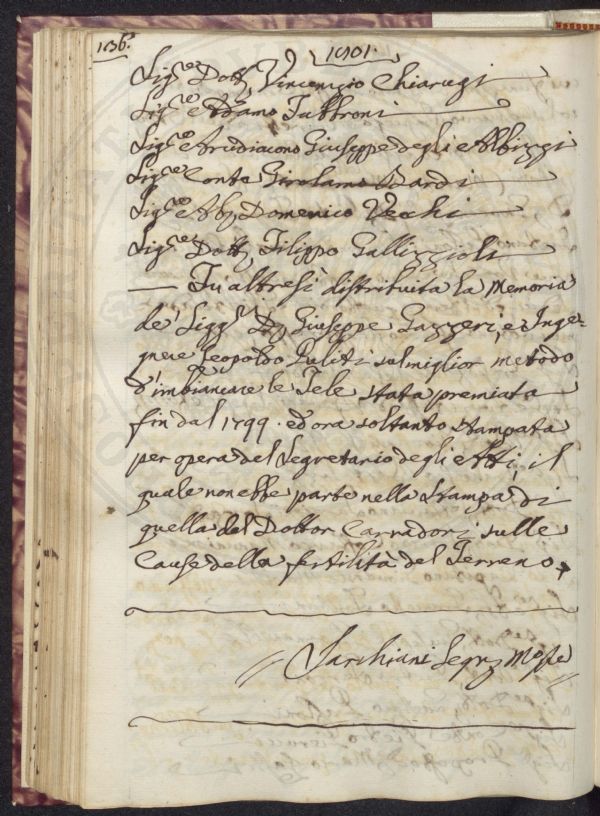 136. 1801.
Sig.re Dott. Vincenzio Chiarugi
Sig.re Adamo Fabbroni
Sig.re Arcidiacono Giuseppe degli Albizzi
Sig.re Conte Girolamo Bardi
Sig.re Ab. Domenico Vechi
Sig.re Dott. Filippo Gallizzioli
— Fu altresì distribuita la Memoria
de' Sigg.ri D. Giuseppe Gazzeri, e Inge-
gnere Leopoldo Puliti sul miglior metodo
d'imbiancare le Tele stata premiata
fin dal 1799. ed ora soltanto stampata
per opera del Segretario degli Atti, il
quale non ebbe parte nella stampa di
quella del Dottor Carradori sulle
Cause della fertilità del Terreno.
Sarchiani Seg.